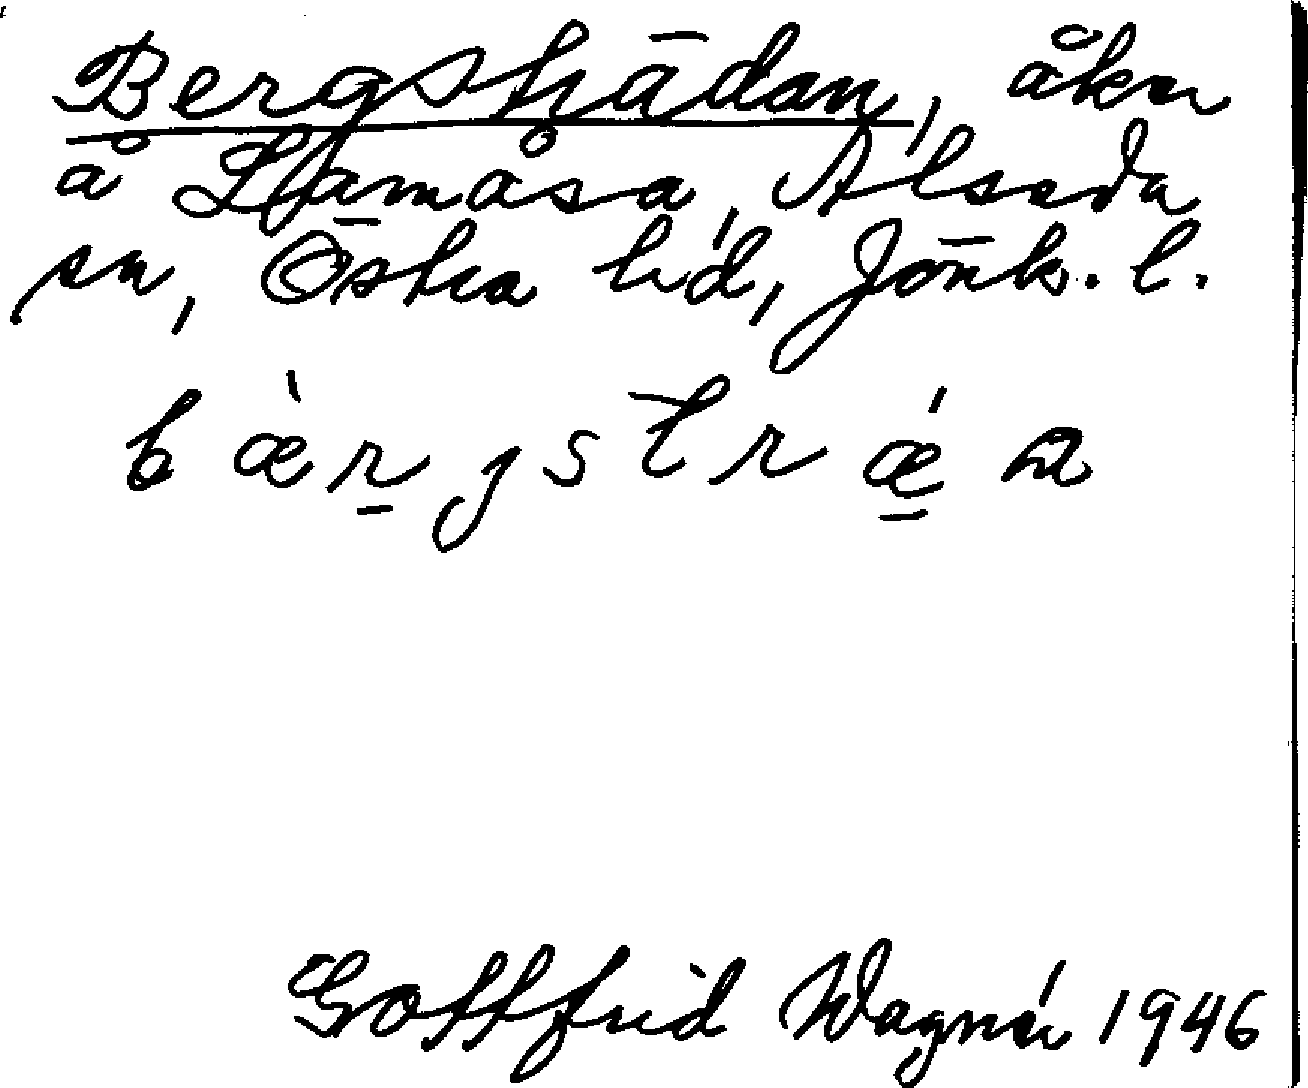 Bergsträdan, åker
å Alseda
sn, Östra hd, Jönk. l.
b æ̀ r̲ j s t r ǽ̲ a
Gottfrid Wagnér 1946